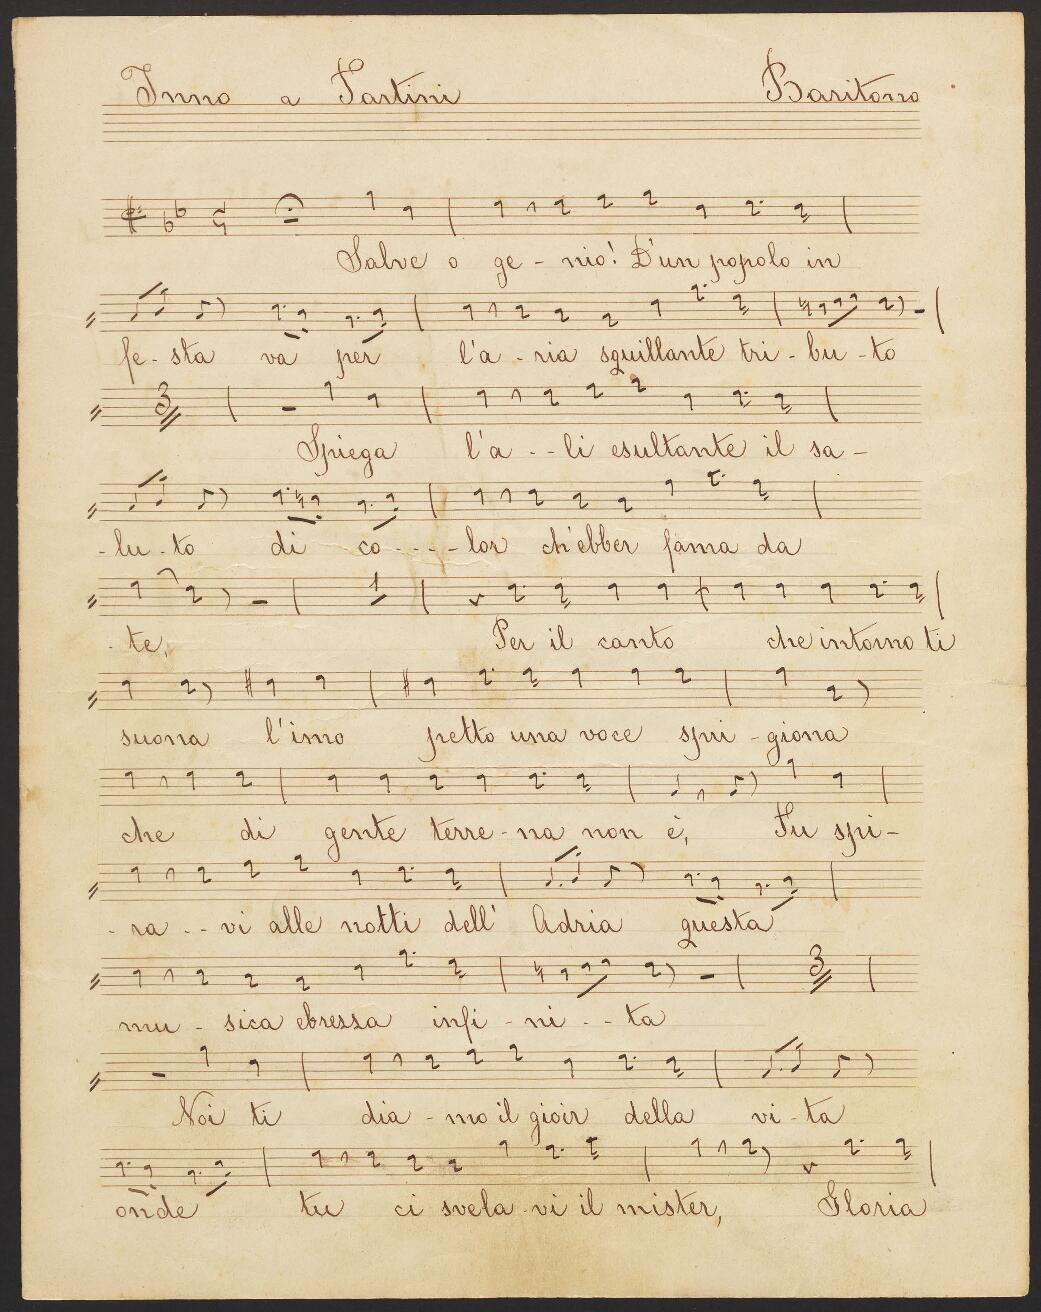 Inno a Tartini Baritono
Salve o ge - nio! D'un popolo in
fe - sta va per l'a - ria squillante tri - bu - to
3
Spiega l'a - - li esultante il sa -
- lu - to di co - - - - lor ch'ebber fama da
1
te, Per il canto che intorno ti
suona l'imo petto una voce spri - giona
che di gente terre - na non è, Tu spi -
- ra - - vi alle notti dell' Adria questa
3
mu - sica ebrezza infi - ni - - ta
Noi ti dia - mo il gioir della vi - ta
onde tu ci svela - vi il mister, Gloria